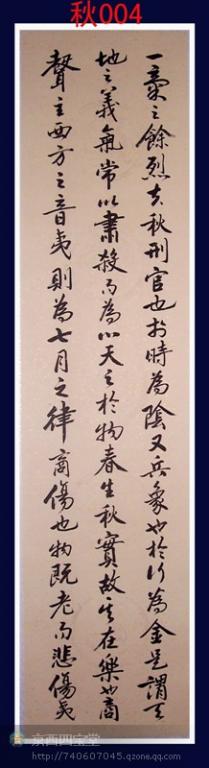 秋004
一氣之餘烈夫秋刑官也於時為陰又兵象也於行為金是謂天
地之義氣常以肅殺而為心天之於物春生秋實故其在樂也商
聲主西方之音夷則為七月之律商傷也物既老而悲傷夷
京西四宝堂
http://740607045.qzone.qq.com